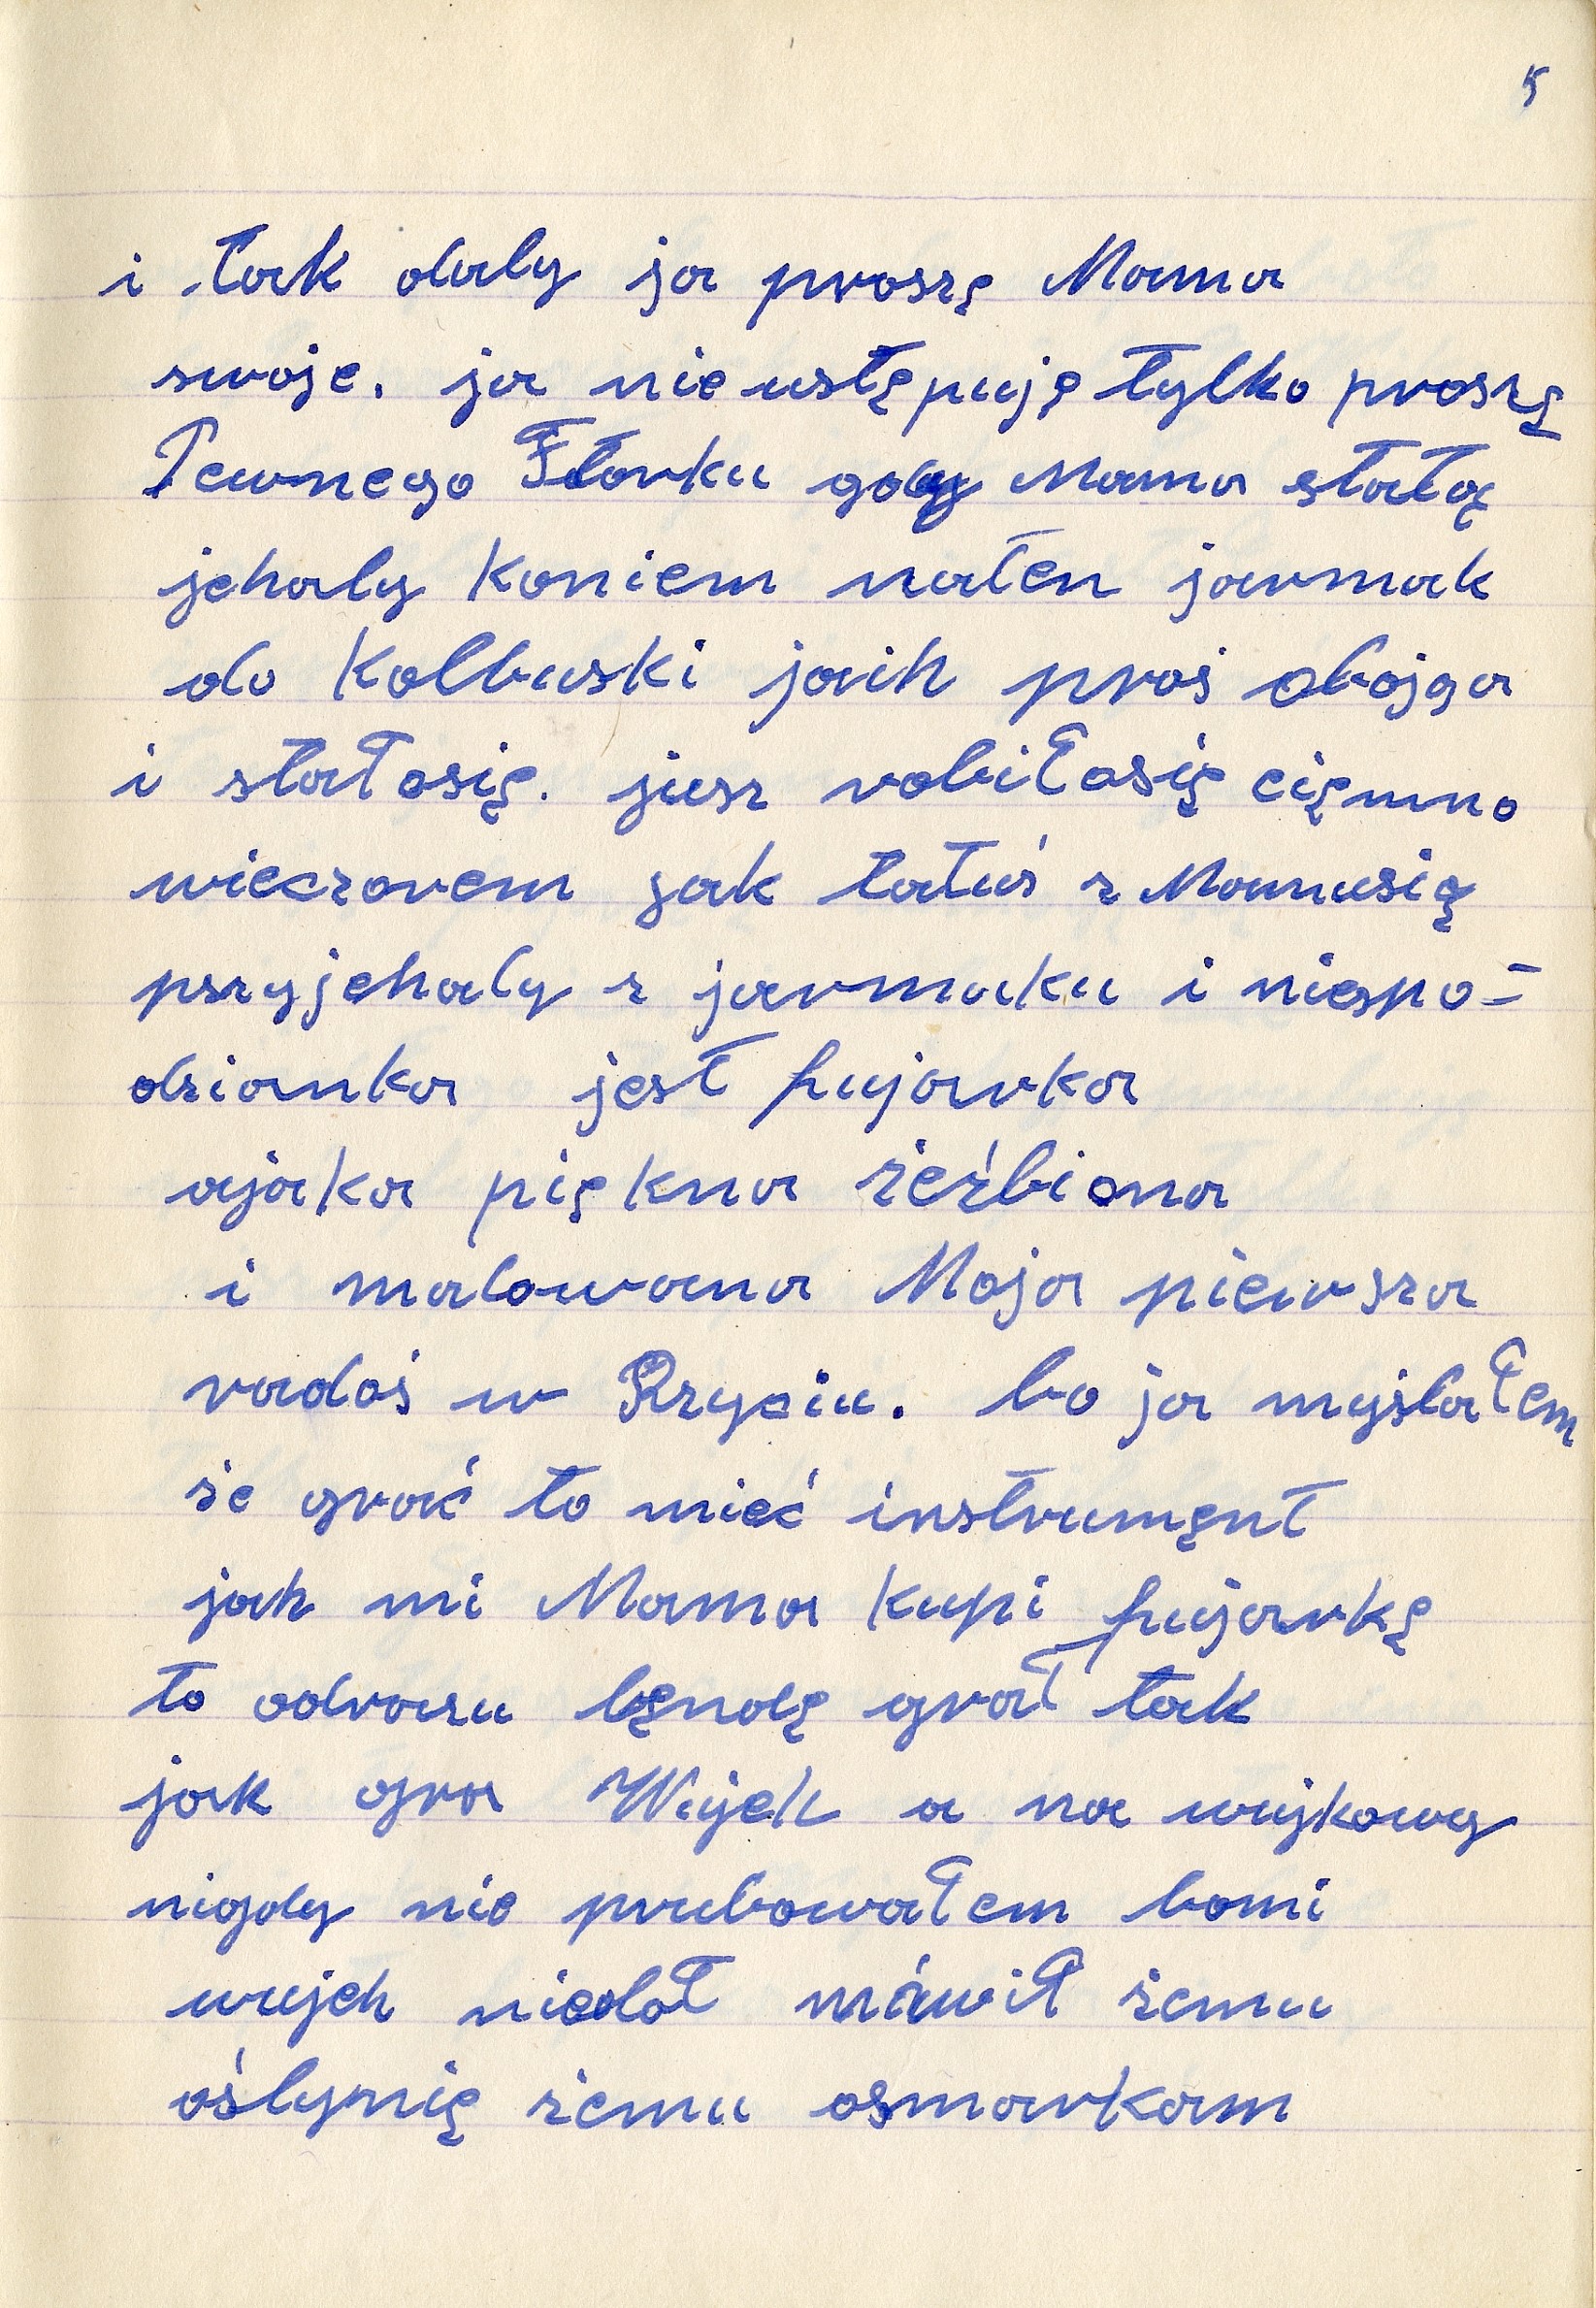 5
i tak daly ja proszę Mama
swoje. ja nie ustępuję tylko proszę
Pewnego Ftorku gdy Mama statą
jehaly koniem naten jarmak
do Kolbuski jaih proś obojga
i stałosię. jusz robiłosię cięmno
wieczorem jak tatuś z Mamusią
pszyjehaly z jarmaku i niespo-
dzianka jest fujarka
ajaka piękna żeźbiona
i malowana Moja pierwsza
radoś w Rzyciu. bo ja myślałem
że grać to mieć instrumęnt
jak mi Mama kupi fujarkę
to odrazu będę grał tak
jak gra Wujek a na wujkowy
nigdy nie prubowałem bomi
wujek niedał máwił żemu
oślynię żemu osmarkam